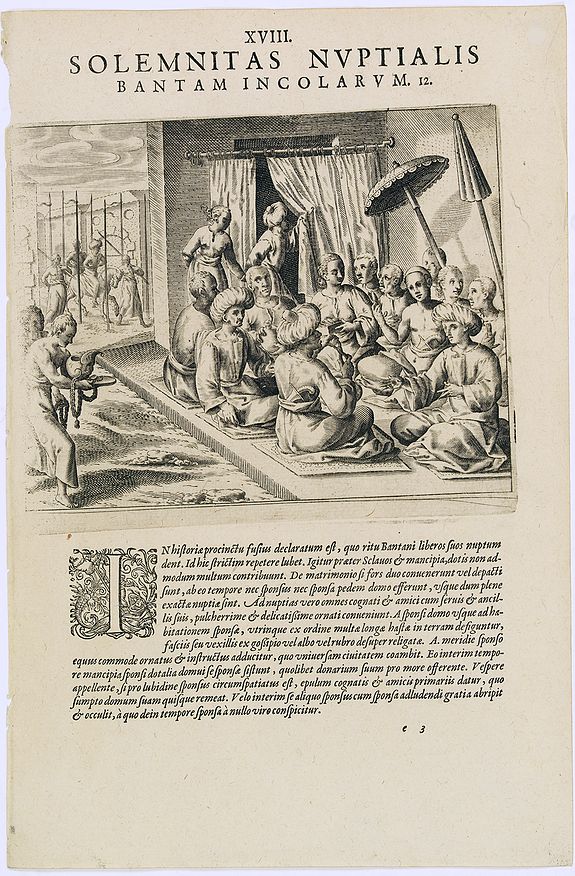 XVIII.
SOLEMNITAS NVPTIALIS
BANTAM INCOLARVM. 12.
IN historiæ procinctu fusius declaratum est, quo ritu Bantani liberos suos nuptum
dent. Id hic strictim repetere lubet. Igitur præter Sclauos & mancipia, dotis non ad-
modum multum contribuunt. De matrimonio si fors duo conuenerunt vel depacti
sunt, ab eo tempore nec sponsus nec sponsa pedem domo efferunt, vsque dum plene
exactæ nuptiæ sint. Ad nuptias vero omnes cognati & amici cum seruis & ancil-
lis suis, pulcherrime & delicatissime ornati conueniunt. A sponsi domo vsque ad ha-
bitationem sponsæ, vtrinque ex ordine multæ longæ hastæ in terram defiguntur,
fasciis seu vexillis ex gosipio vel albo vel rubro desuper religatæ. A. meridie sponso
equus commode ornatus & instructus adducitur, quo vniuersam ciuitatem coambit. Eo interim tempo-
re mancipia sponsi dotalia domui se sponsæ sistunt, quolibet donarium suum pro more offerente. Vespere
appellente, si pro lubidine sponsus circumspatiatus est, epulum cognatis & amicis primariis datur, quo
sumpto domum suam quisque remeat. Velo interim se aliquo sponsus cum sponsa adludendi gratia abripit
& occulit, à quo dein tempore sponsa à nullo viro conspicitur.
e 3